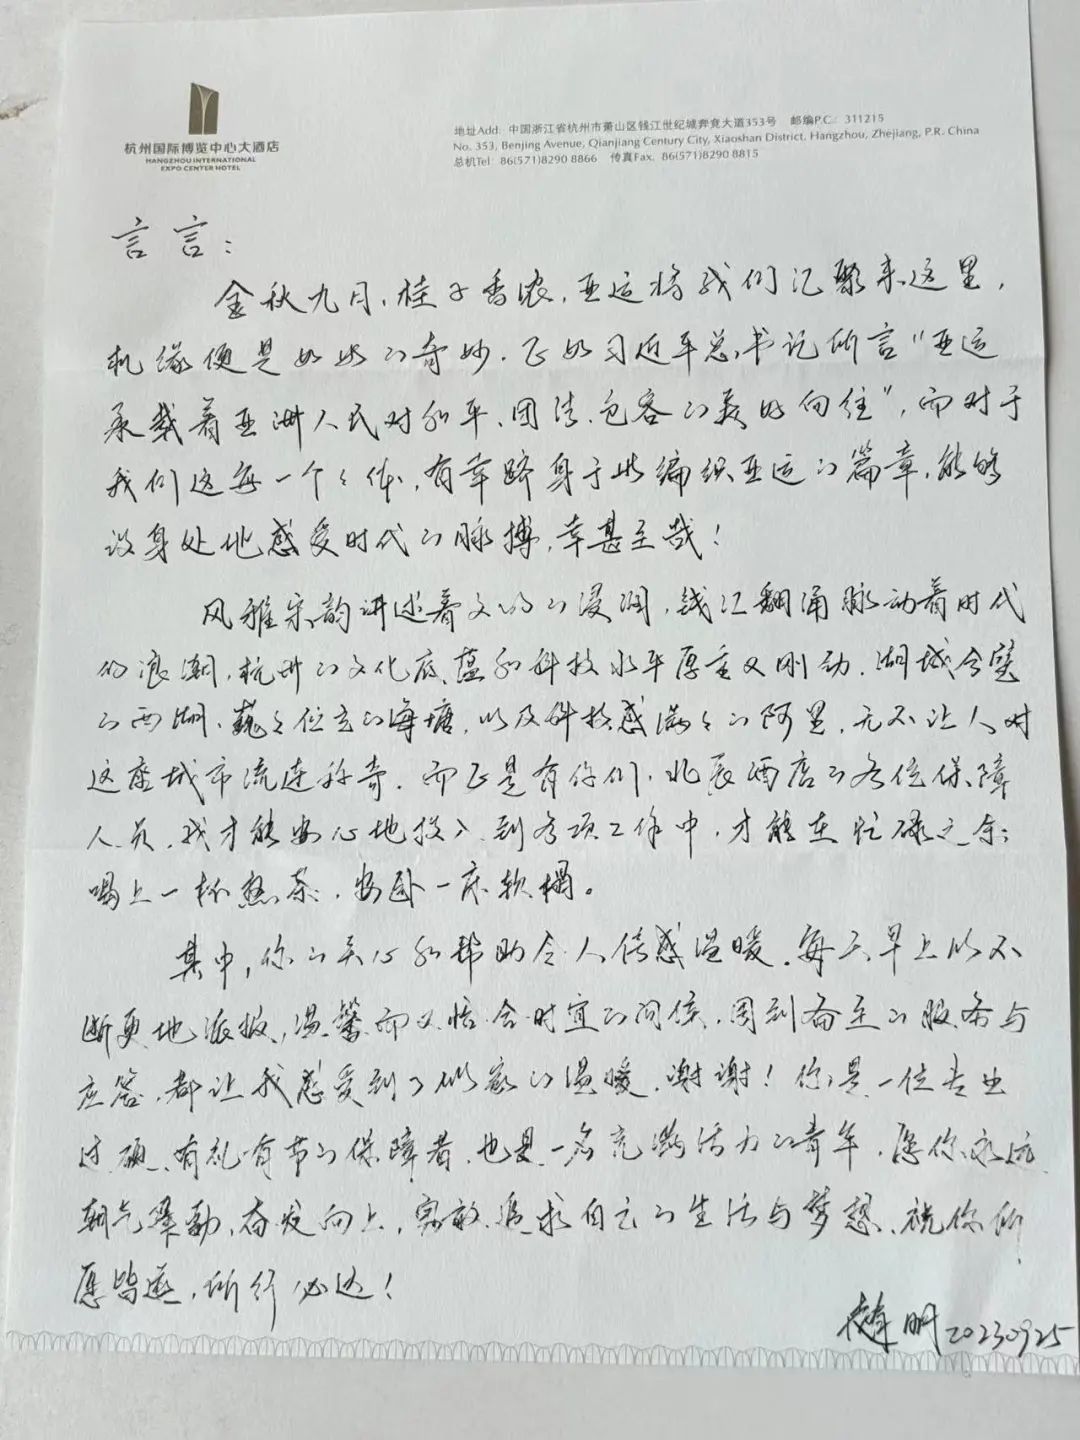 杭州国际博览中心大酒店
HANGZHOU INTERNATIONAL
EXPO CENTER HOTEL
地址Add: 中国浙江省杭州市萧山区钱江世纪城奔竞大道353号 邮编P.C.: 311215
No. 353, Benjing Avenue, Qianjiang Century City, Xiaoshan District, Hangzhou, Zhejiang, P.R. China
总机Tel: 86(571)8290 8866 传真Fax: 86(571)8290 8815
言言：
金秋九月，桂子香浓，亚运将我们汇聚来这里，
机缘便是如此的奇妙。正如习近平总书记所言“亚运
承载着亚洲人民对和平、团结、包容的美好向往”，而对于
我们这每一个个体，有幸跻身于此编织亚运的篇章，能够
设身处地感受时代的脉搏，幸甚至哉！
风雅宋韵讲述着文明的浸润，钱江翻涌脉动着时代
的浪潮，杭州的文化底蕴和科技水平厚重又刚劲。湖城合璧
的西湖、巍巍位立的海塘，以及科技感满满的阿里，无不让人对
这座城市流连称奇。而正是有你们，北辰酒店的各位保障
人员，我才能安心地投入到各项工作中，才能在忙碌之余
喝上一杯热茶，安卧一床软榻。
其中，你的关心和帮助令人倍感温暖。每天早上从不
断更地派报，温馨而又恰合时宜的问候，周到备至的服务与
应答，都让我感受到了似家的温暖，谢谢！你是一位专业
过硬、有礼有节的保障者，也是一名充满活力的青年，愿你永远
朝气蓬勃，奋发向上，勇敢追求自己的生活与梦想，祝你所
愿皆遂，所行必达！
明 20230925